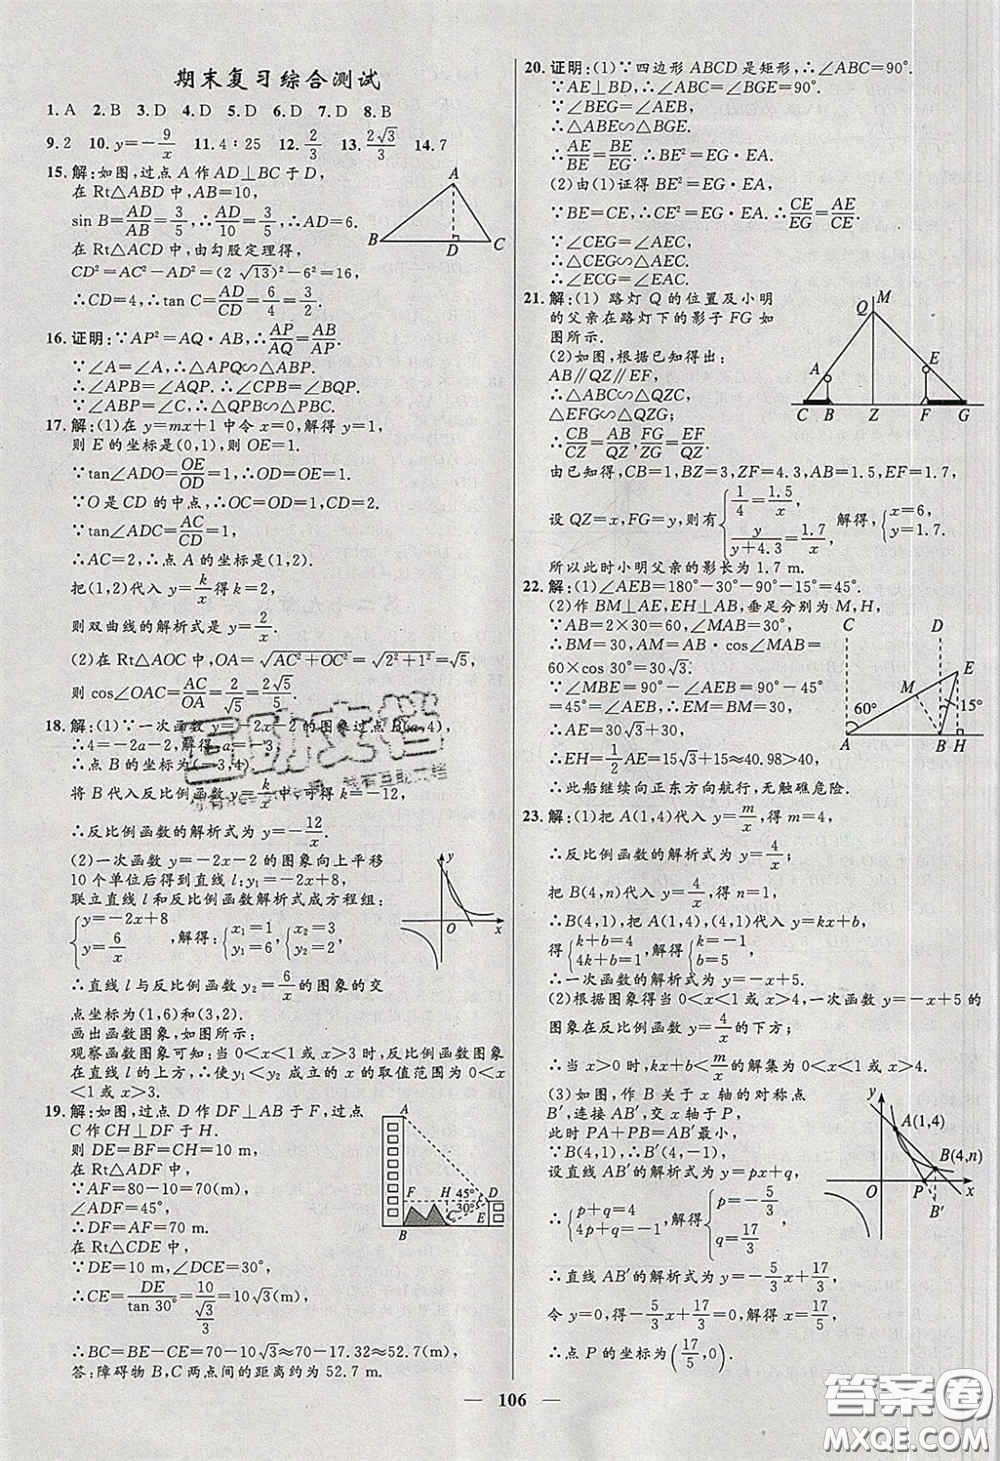 期末复习综合测试
1.A 2.B 3.D 4.D 5.D 6.D 7.D 8.B
9.2 10.y=-9/x 11.4∶25 12.2/3 13.2√3/3 14.7
15.解:如图,过点A作AD⊥BC于D,
在Rt△ABD中,AB=10,
sin B=AD/AB=3/5,∴AD/10=3/5,∴AD=6.
在Rt△ACD中,由勾股定理得,
CD²=AC²-AD²=(2√13)²-6²=16,
∴CD=4,∴tan C=AD/CD=6/4=3/2.
A
B
D
C
16.证明:∵AP²=AQ·AB,∴AP/AQ=AB/AP.
∵∠A=∠A,∴△APQ∽△ABP.
∴∠APB=∠AQP.∴∠CPB=∠BQP.
∵∠APB=∠C,∴△QPB∽△PBC.
17.解:(1)在y=mx+1中令x=0,解得y=1,
则E的坐标是(0,1),则OE=1.
∵tan∠ADO=OE/OD=1,∴OD=OE=1.
∵O是CD的中点,∴OC=OD=1,∴CD=2.
∵tan∠ADC=AC/CD=1,
∴AC=2,∴点A的坐标是(1,2).
把(1,2)代入y=k/x得k=2,
则双曲线的解析式是y=2/x.
(2)在Rt△AOC中,OA=√AC²+OC²=√2²+1²=√5,
则cos∠OAC=AC/OA=2/√5=2√5/5.
18.解:(1)∵一次函数y=-2x-2的图象过点B(a,4),
∴4=-2a-2,解得a=-3,
∴点B的坐标为(-3,4),
将B代入反比例函数y=k/x中,可得k=-12,
∴反比例函数的解析式为y=-12/x.
(2)一次函数y=-2x-2的图象向上平移
10个单位后得到直线l:y₁=-2x+8,
联立直线l和反比例函数解析式成方程组:
{y=-2x+8 y=6/x,解得:{x₁=1 y₁=6,{x₂=3 y₂=2.
∴直线l与反比例函数y₂=6/x的图象的交
点坐标为(1,6)和(3,2).
画出函数图象,如图所示:
观察函数图象可知:当0<x<1或x>3时,反比例函数图象
在直线l的上方,∴使y₁<y₂成立的x的取值范围为0<x
<1或x>3.
y
O
x
19.解:如图,过点D作DF⊥AB于F,过点
C作CH⊥DF于H.
则DE=BF=CH=10(m),
在Rt△ADF中,
∵AF=80-10=70(m),
∠ADF=45°,
∴DF=AF=70 m.
在Rt△CDE中,
∵DE=10 m,∠DCE=30°,
∴CE=DE/tan 30°=10/(√3/3)=10√3(m),
∴BC=BE-CE=70-10√3≈70-17.32≈52.7(m).
答:障碍物B,C两点间的距离约为52.7 m.
A
F
H
45°
D
30°
C
E
B
20.证明:(1)∵四边形ABCD是矩形,∴∠ABC=90°.
∵AE⊥BD,∴∠BGE=∠ABE=90°.
∵∠BEG=∠AEB,
∴△ABE∽△BGE.
∴AE/BE=BE/EG.∴BE²=EG·EA.
(2)由(1)证得BE²=EG·EA,
∵BE=CE,∴CE²=EG·EA.∴CE/EG=AE/CE.
∵∠CEG=∠AEC,
∴△CEG∽△AEC.
∴∠ECG=∠EAC.
21.解:(1)路灯Q的位置及小明
的父亲在路灯下的影子FG如
图所示.
(2)如图,根据已知得出:
AB∥QZ∥EF,
∴△ABC∽△QZC,
△EFG∽△QZG;
∴CB/CZ=AB/QZ,FG/ZG=EF/QZ.
由已知得,CB=1,BZ=3,ZF=4.3,AB=1.5,EF=1.7,
设QZ=x,FG=y,则有{1/4=1.5/x y/(y+4.3)=1.7/x 解得,{x=6, y=1.7.
所以此时小明父亲的影长为1.7 m.
M
Q
A
E
C B Z F G
22.解:(1)∠AEB=180°-30°-90°-15°=45°.
(2)作BM⊥AE,EH⊥AB,垂足分别为M,H,
∵AB=2×30=60,∠MAB=30°,
∴BM=30,AM=AB·cos∠MAB=
60×cos 30°=30√3.
∵∠MBE=90°-∠MEB=90°-45°
=45°=∠MEB,∴EM=BM=30,
∴AE=30√3+30,
∴EH=1/2 AE=15√3+15≈40.98>40,
∴此船继续向正东方向航行,无触礁危险.
C
D
E
M
60°
15°
A
B H
23.解:(1)把A(1,4)代入y=m/x,得m=4,
∴反比例函数的解析式为y=4/x,
把B(4,n)代入y=4/x,得n=1,
∴B(4,1),把A(1,4),(4,1)代入y=kx+b,
得{k+b=4 4k+b=1,解得{k=-1 b=5,
∴一次函数的解析式为y=-x+5.
(2)根据图象得当0<x<1或x>4,一次函数y=-x+5的
图象在反比例函数y=4/x的下方;
∴当x>0时,kx+b<m/x的解集为0<x<1或x>4.
(3)如图,作B关于x轴的对称点
B′,连接AB′,交x轴于P,
此时PA+PB=AB′最小,
∵B(4,1),∴B′(4,-1),
设直线AB′的解析式为y=px+q,
∴{p+q=4 4p+q=-1,解得{p=-5/3 q=17/3,
∴直线AB′的解析式为y=-5/3 x+17/3,
令y=0,得-5/3 x+17/3=0,解得x=17/5,
∴点P的坐标为(17/5,0).
y
A(1,4)
B(4,n)
O
P
x
B′
— 106 —
互助文档
答案圈
MXQE.COM